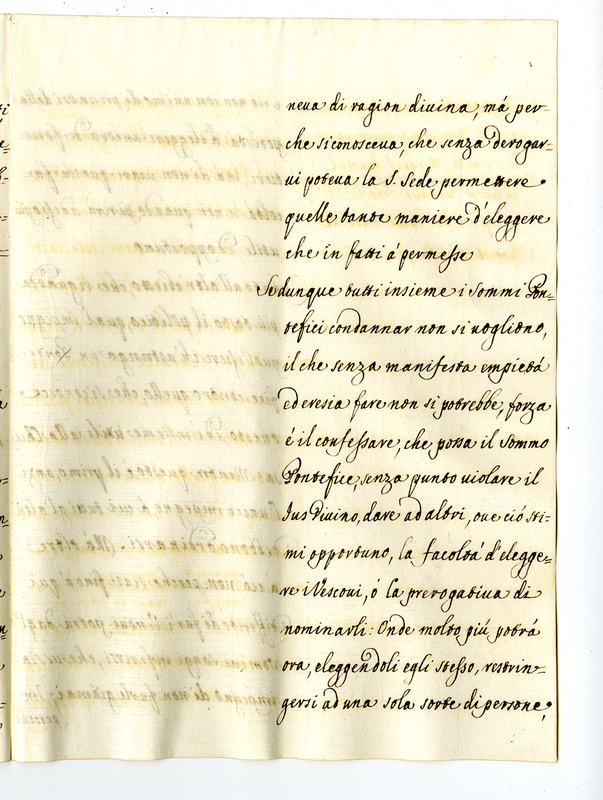 neva di ragion divina, má per-
che si conosceva, che senza derogar-
vi poteva la S. Sede permettere
quelle tante maniere d'eleggere
che in fatti á permesse
Se dunque tutti insieme i Sommi Pon=
tefici condannar non si vogliono,
il che senza manifesta empietá
ed eresia fare non si potrebbe, forza
é il confessare, che possa il Sommo
Pontefice, senza punto violare il
Jus Divino, dare ad altri, ove ció sti-
mi opportuno, la facoltá d'elegge=
re i Vescovi, ó la prerogativa di
nominarli: Onde molto piú potrá
ora, eleggendoli egli stesso, restrin-
gersi ad una sola sorte di persone,